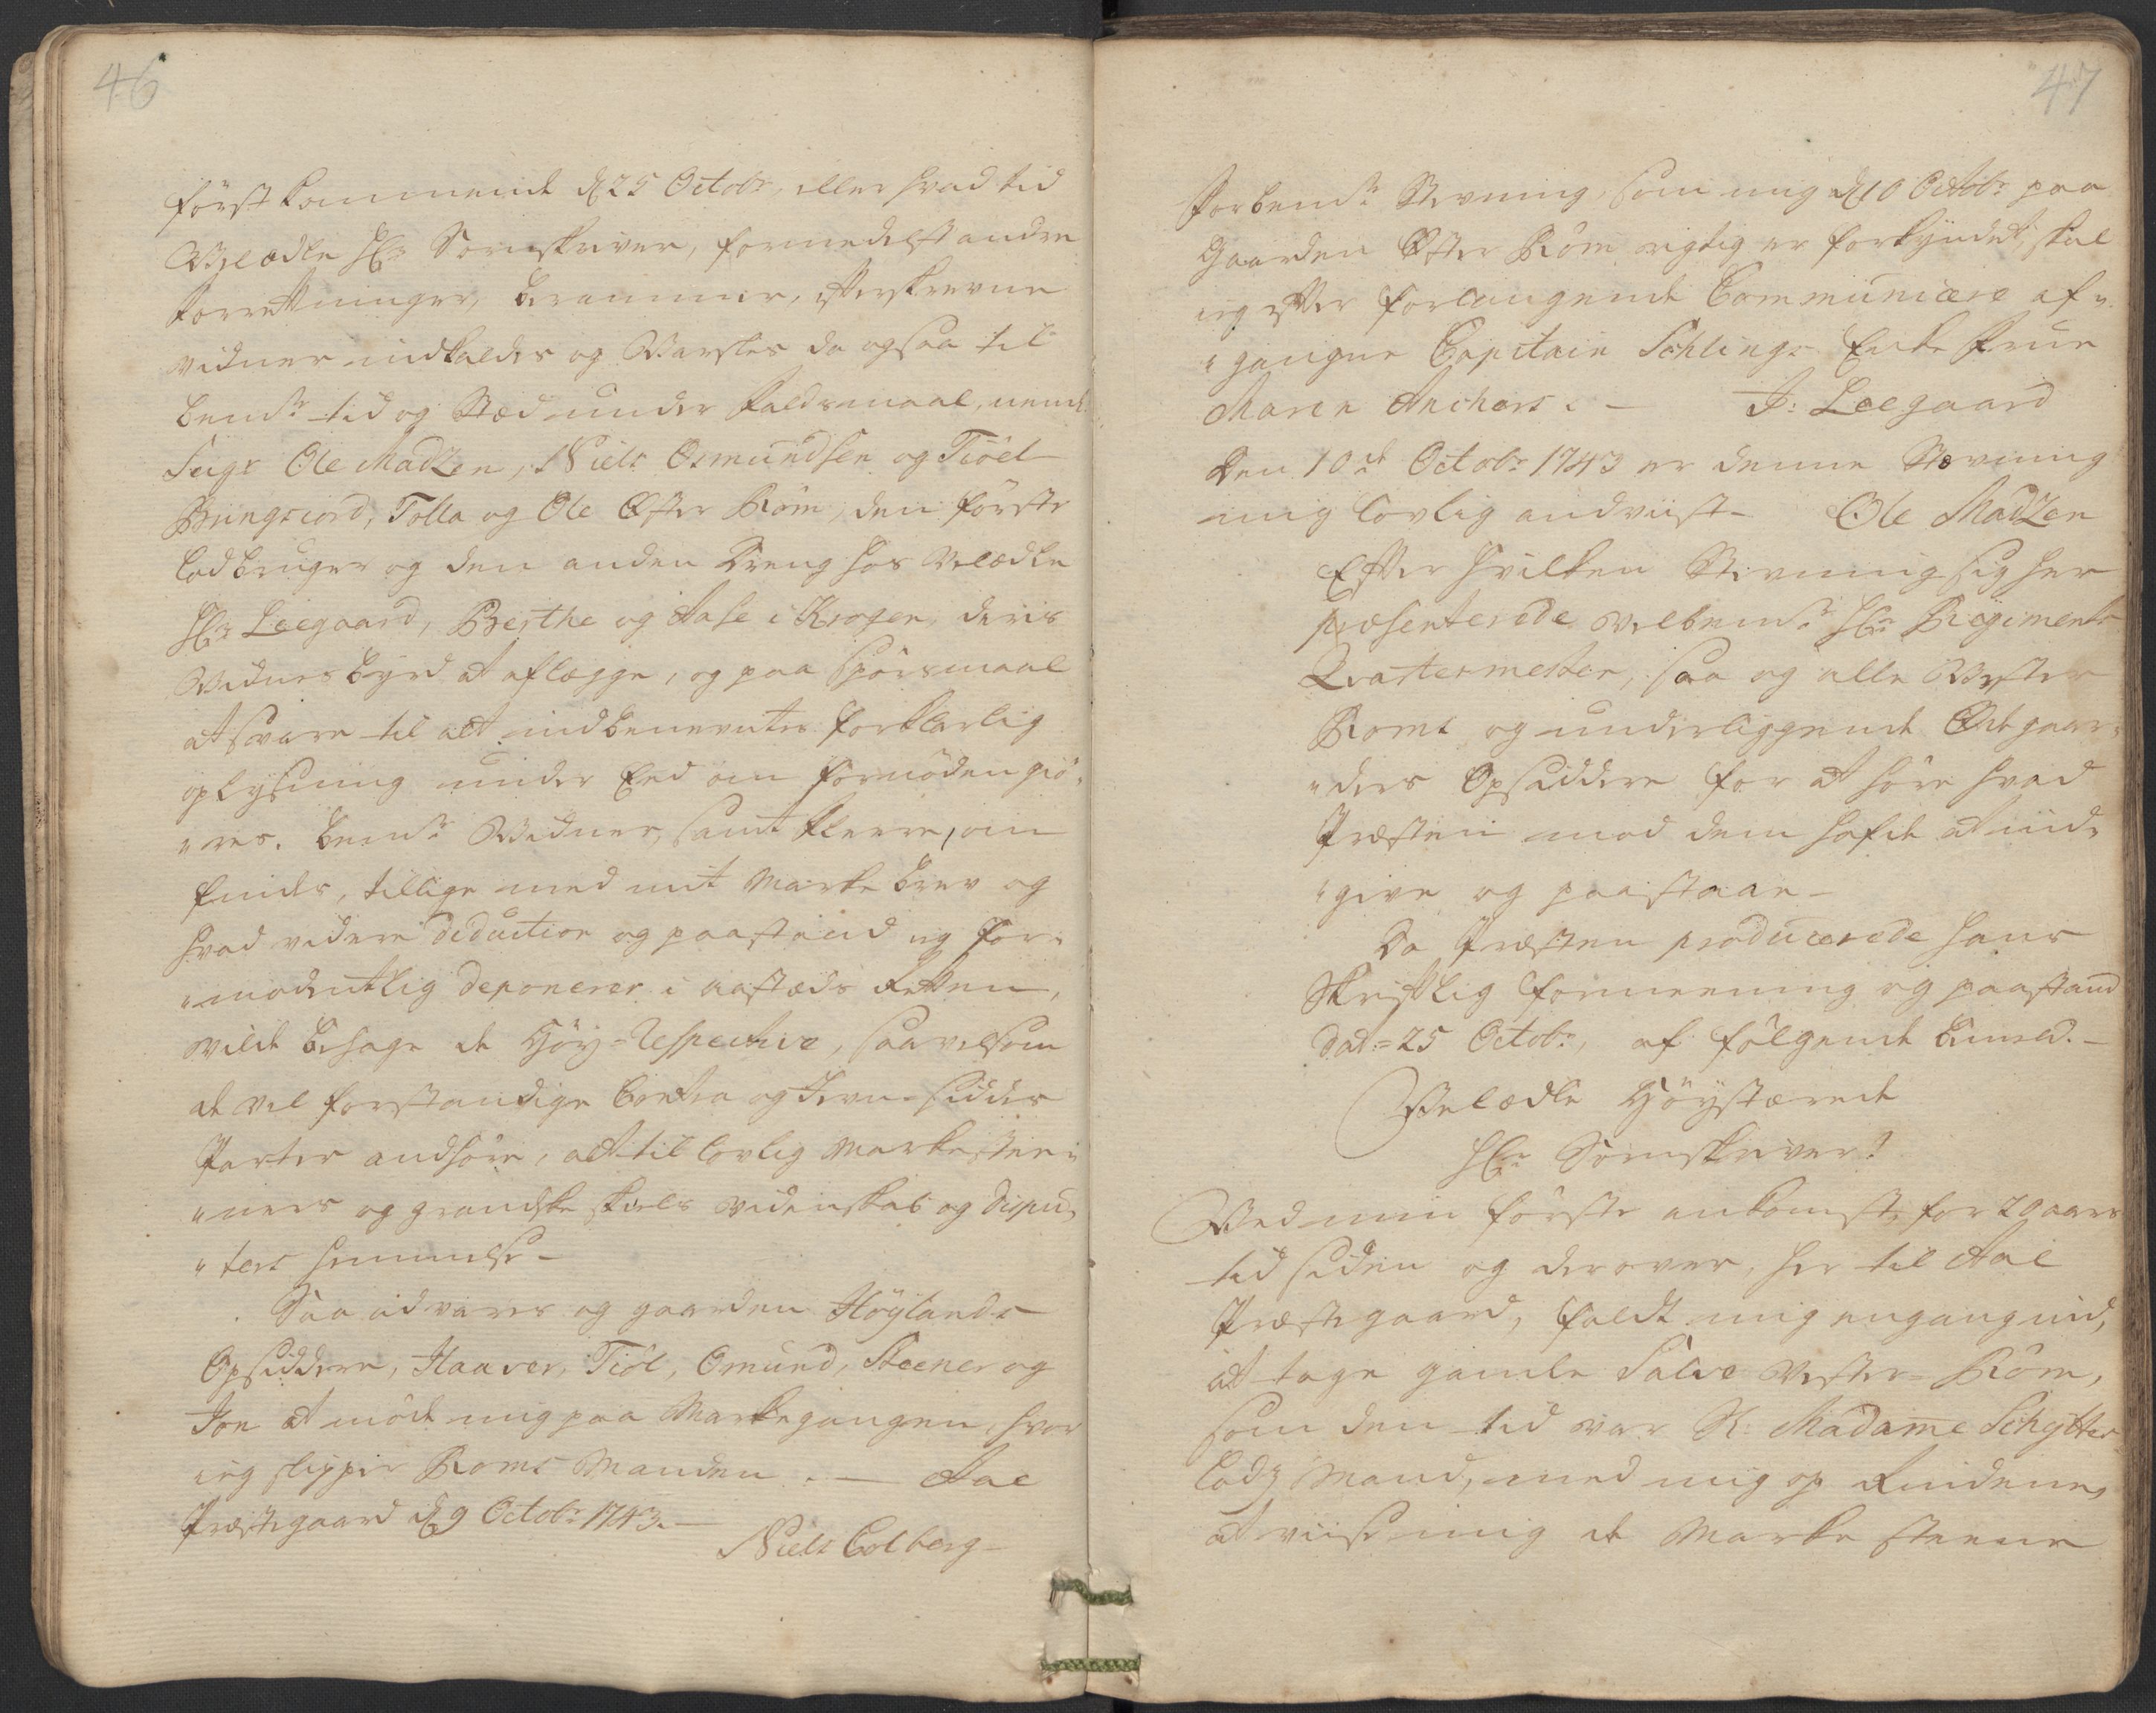 46
först kommende d 25 Octobr, eller hvad tid
Velædle Hr Sorenskriver, formedelst andre
forretninger, berammer, efterskrevne
vidner indkaldes og Varsles da ogsaa til
bemte tid og Stæd under faldsmaal, neml.
Seigr Ole Madzen, Niels Osmundsen og Tiöel
Bringsiord, Tolla og Ole Öster Röm, den förste
Lodbruger og den anden Dreng hos Velædle
Hr Leegaard, Berthe og Aase i Krogen, deris
Vidnesbyrd at aflægge, og paa Spörsmaal
at svare til alt indbenevntes forklarlig
oplysning under Eed om fornöden giö-
"res. bemte Vidner, samt fleere, om
findes, tillige med mit Marke brev og
hvad videre deduction og paastand ieg for-
"modentlig deponerer i aastæds Retten,
vilde behage de Höy-respective, saavelsom
de vel forstandige Contra og Jevn-sidder
Parter anhöre, alt til lovlig Markestee-
"ners og grandske skiels videnskab og dispu-
"ters hemmelse -
Saa advares og gaarden Höylands
Opsiddere, Haaver, Tiöl, Omund, Steener og
Jon at möde mig paa Markegangen, hvor
ieg slipper Roms Manden. - Aae
Præstegaard d 9 Octobr 1743. -
Niels Colberg -
47
Forbemte Stevning, som mig d 10 Octobr paa
Gaarden Öster Röm rigtig er forkyndet, skal
ieg efter forlangende Communicere af-
"gangne Capitain Sehlings Enke Frue
Maren Anchers. - J: Leegaard
Den 10de Octobr 1743 er denne Stevning
mig lovlig andviist - Ole Madzen
Efter hvilken Stevning sig her
præsenterede velbemte Hr Regiments
Qvartermester, saa og alle Vester
Roms og underliggende Ödegaar-
"ders Opsiddere for at höre hvad
Præsten mod dem hafde at ind-
"give og paastaae -
Da Præsten producerede hans
Skriftlig formeening og paastand
dad:= 25 Octobr, af fölgende Inneld. -
Velædle Höystærede
Hr Sörnskriver!
Ved min förste ankomst, for 20 aars
tid siden og derover, her til Aae
Præstegaard, faldt mig engang ind,
at tage gamle Salve Vester-Röm,
som den tid var S: Madame Schytter
Lodz Mand, med mig op
at viise mig de Marke steene